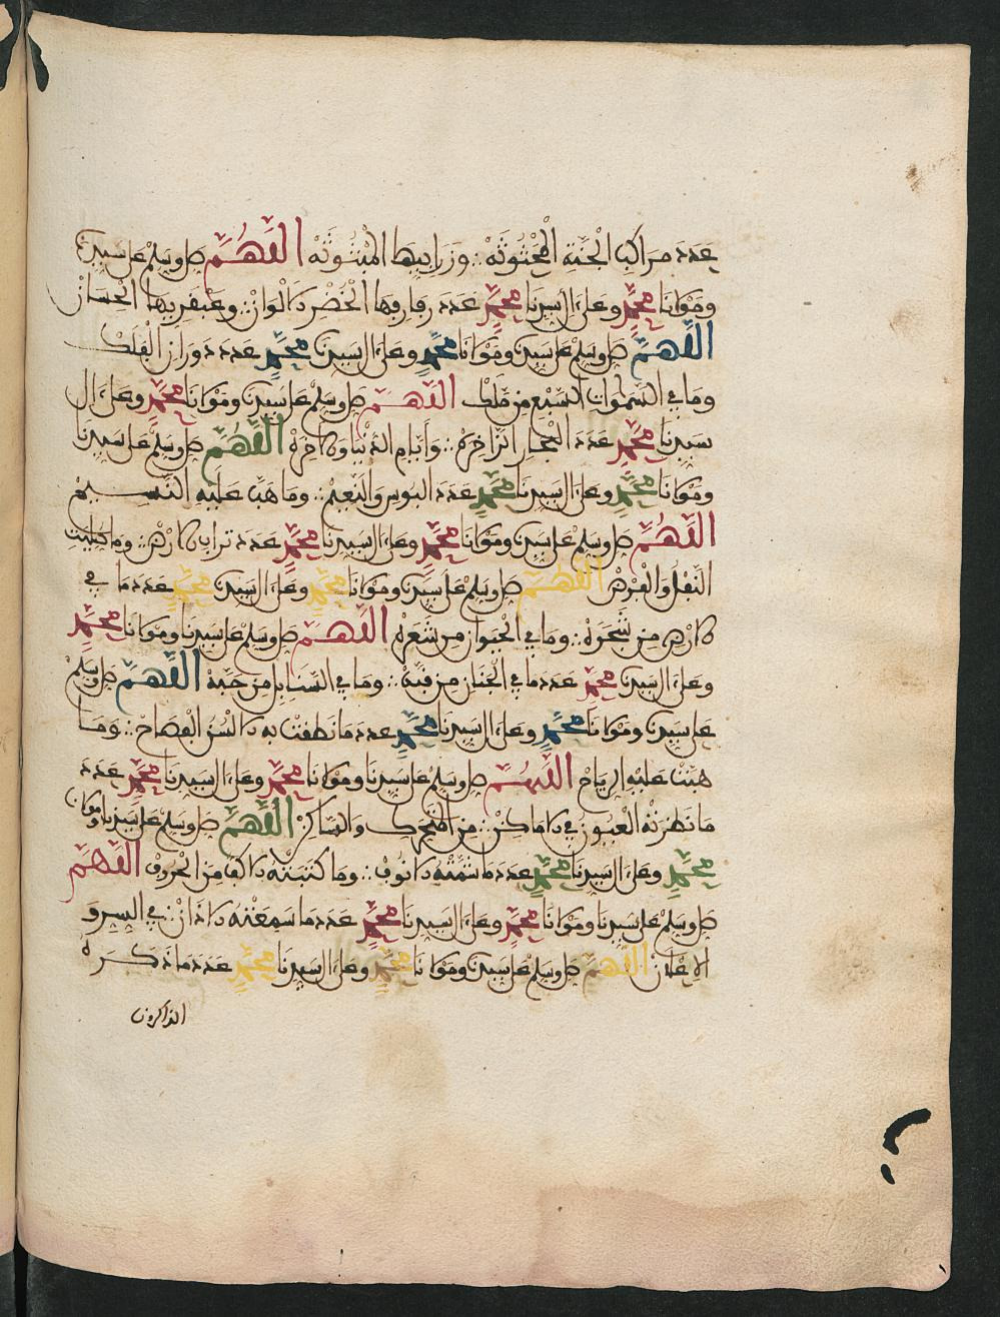 عدد مراكب الجنة المحثوثة ∴ وزرابيها المبثوثة اللهم صل وسلم على سيدنا
ومولانا محمد وعلى ءال سيدنا محمد عدد رفارفها الخضر الالوان ∴ وعبقريها الحسان
اللهم صل وسلم على سيدنا ومولانا محمد وعلى ءال سيدنا محمد عدد دوران الفلك
وما في السموات السبع من ملك اللهم صل وسلم على سيدنا ومولانا محمد وعلى ءال
سيدنا محمد عدد البحار الزاخرة ∴ وأيام الدنيا والاخرة اللهم صل وسلم على سيدنا
ومولانا محمد وعلى ءال سيدنا محمد عدد البوس والنعيم ∴ وما هب عليه النسيم
اللهم صل وسلم على سيدنا ومولانا محمد وعلى ءال سيدنا محمد عدد تراب الارض ∴ وما صليت
النفل والفرض اللهم صل وسلم على سيدنا ومولانا محمد وعلى ءال سيدنا محمد عدد ما في
الارض من شجرة ∴ وما في الحيوان من شعرة اللهم صل وسلم على سيدنا ومولانا محمد
وعلى ءال سيدنا محمد عدد ما في الجنان من قبة ∴ وما في السنابل من حبة اللهم صل وسلم
على سيدنا ومولانا محمد وعلى ءال سيدنا محمد عدد ما نطقت به الالسن الفصاح ∴ وما
هبت عليه الرياح اللهم صل وسلم على سيدنا ومولانا محمد وعلى ءال سيدنا محمد عدد
ما نظرته العيون في الاماكن ∴ من المتحرك والساكن اللهم صل وسلم على سيدنا ومولانا
محمد وعلى ءال سيدنا محمد عدد ما شمته الانوف ∴ وما كتبته الاكف من الحروف اللهم
صل وسلم على سيدنا ومولانا محمد وعلى ءال سيدنا محمد عدد ما سمعته الاذان ∴ في السر و
الاعلان اللهم صل وسلم على سيدنا ومولانا محمد وعلى ءال سيدنا محمد عدد ما ذكره
الذاكرون